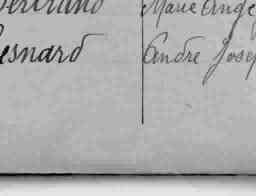 Bertrand Marie Ange
Besnard André Josep